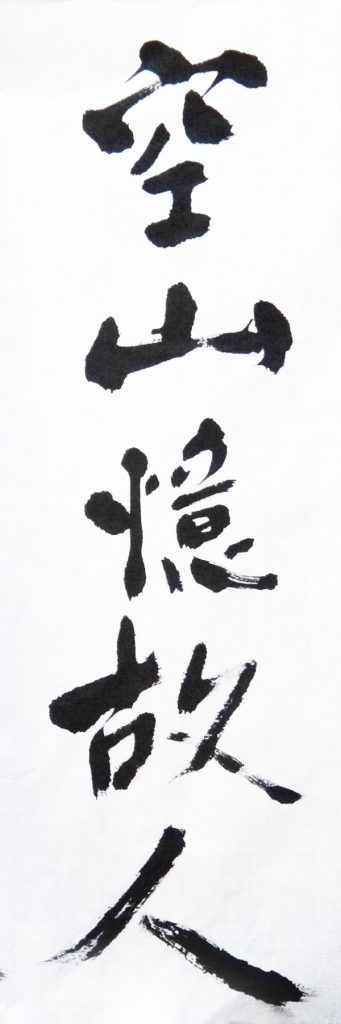 空山憶故人